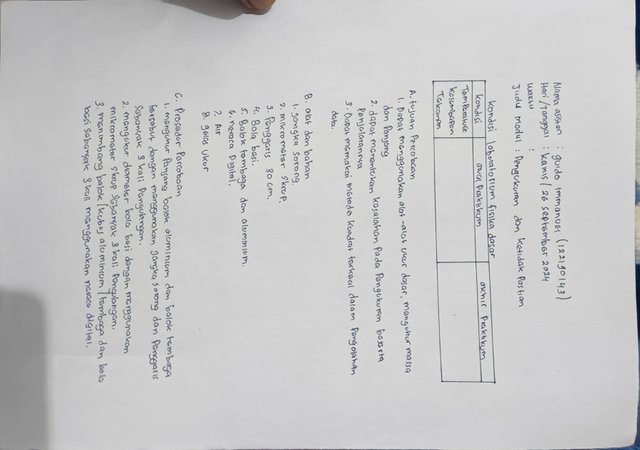 Nama asisten : guido immanuel (122190143)
Hari/Tanggal : kamis / 26 september 2024
waktu :
Judul modul : Pengukuran dan ketidak Pastian
kondisi laboratorium fisika dasar
kondisi awal Praktikum akhir Praktikum
Temperature
kelembaban
Tekanan
A. tujuan Percobaan
1. Dapat menggunakan alat-alat ukur dasar, mengukur massa
dan Panjang
2. dapat menentukan kesalahan Pada Pengukuran beserta
Penjalarannya
3. Dapat memakai metode kuadrat terkecil dalam Pengolahan
data.
B. alat dan bahan
1. jangka sorong
2. mikrometer skrup.
3. Penggaris 30 cm.
4. Bola besi.
5. Balok tembaga dan aluminium.
6. neraca Digital.
7. Air
8. gelas ukur
C. Prosedur Percobaan
1. mengukur Panjang balok aluminium dan balok tembaga
tersebut dengan menggunakan jangka sorong dan Penggaris
Sebanyak 3 kali Pengulangan.
2. mengukur diameter bola besi dengan menggunakan
mikrometer skrup sebanyak 3 kali Pengulangan.
3. menimbang balok/kubus aluminium/tembaga dan bola
besi sebanyak 3 kali menggunakan neraca digital.